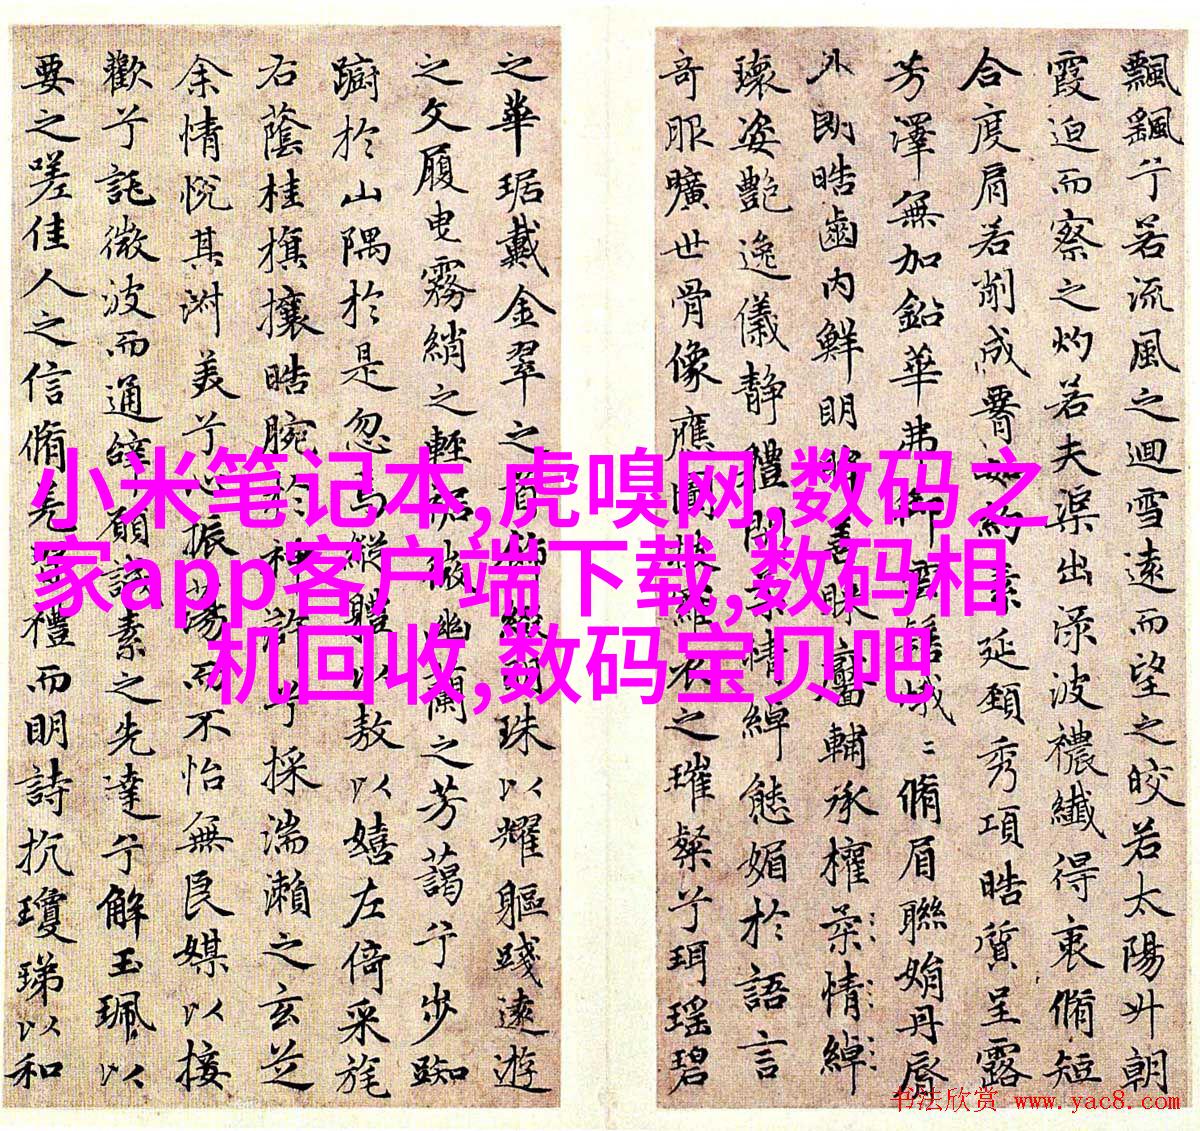 飄飖兮若流風之迴雪遠而望之皎若太陽升朝
霞迫而察之灼若夫渠出淥波襛纖得衷脩短
合度肩若削成
延頸秀項皓質呈露
芳澤無加鉛華弗御
脩眉聯娟丹脣
外朗皓齒內鮮明
輔承權柔情綽
瓌姿艷逸儀靜體閑
情綽態媚於語言
奇服曠世骨像應圖
之璀粲兮珥瑤碧
之華琚戴金翠之首
珠以耀軀踐遠遊
之文履曳霧綃之輕裾
蘭之芳藹兮步踟
躕於山隅於是忽
縱體以敖以嬉左倚采旄
右蔭桂旗攘皓腕於神滸兮採湍瀨之玄芝
余情悅其淑美兮心振蕩而不怡無良媒以接
歡兮託微波而通辭願誠素之先達兮解玉珮以
要之嗟佳人之信脩羌習禮而明詩抗瓊珶以和
小米笔记本,虎嗅网,数码之
家app客户端下载,数码相
机回收,数码宝贝吧
书法欣赏 www.yac8.com